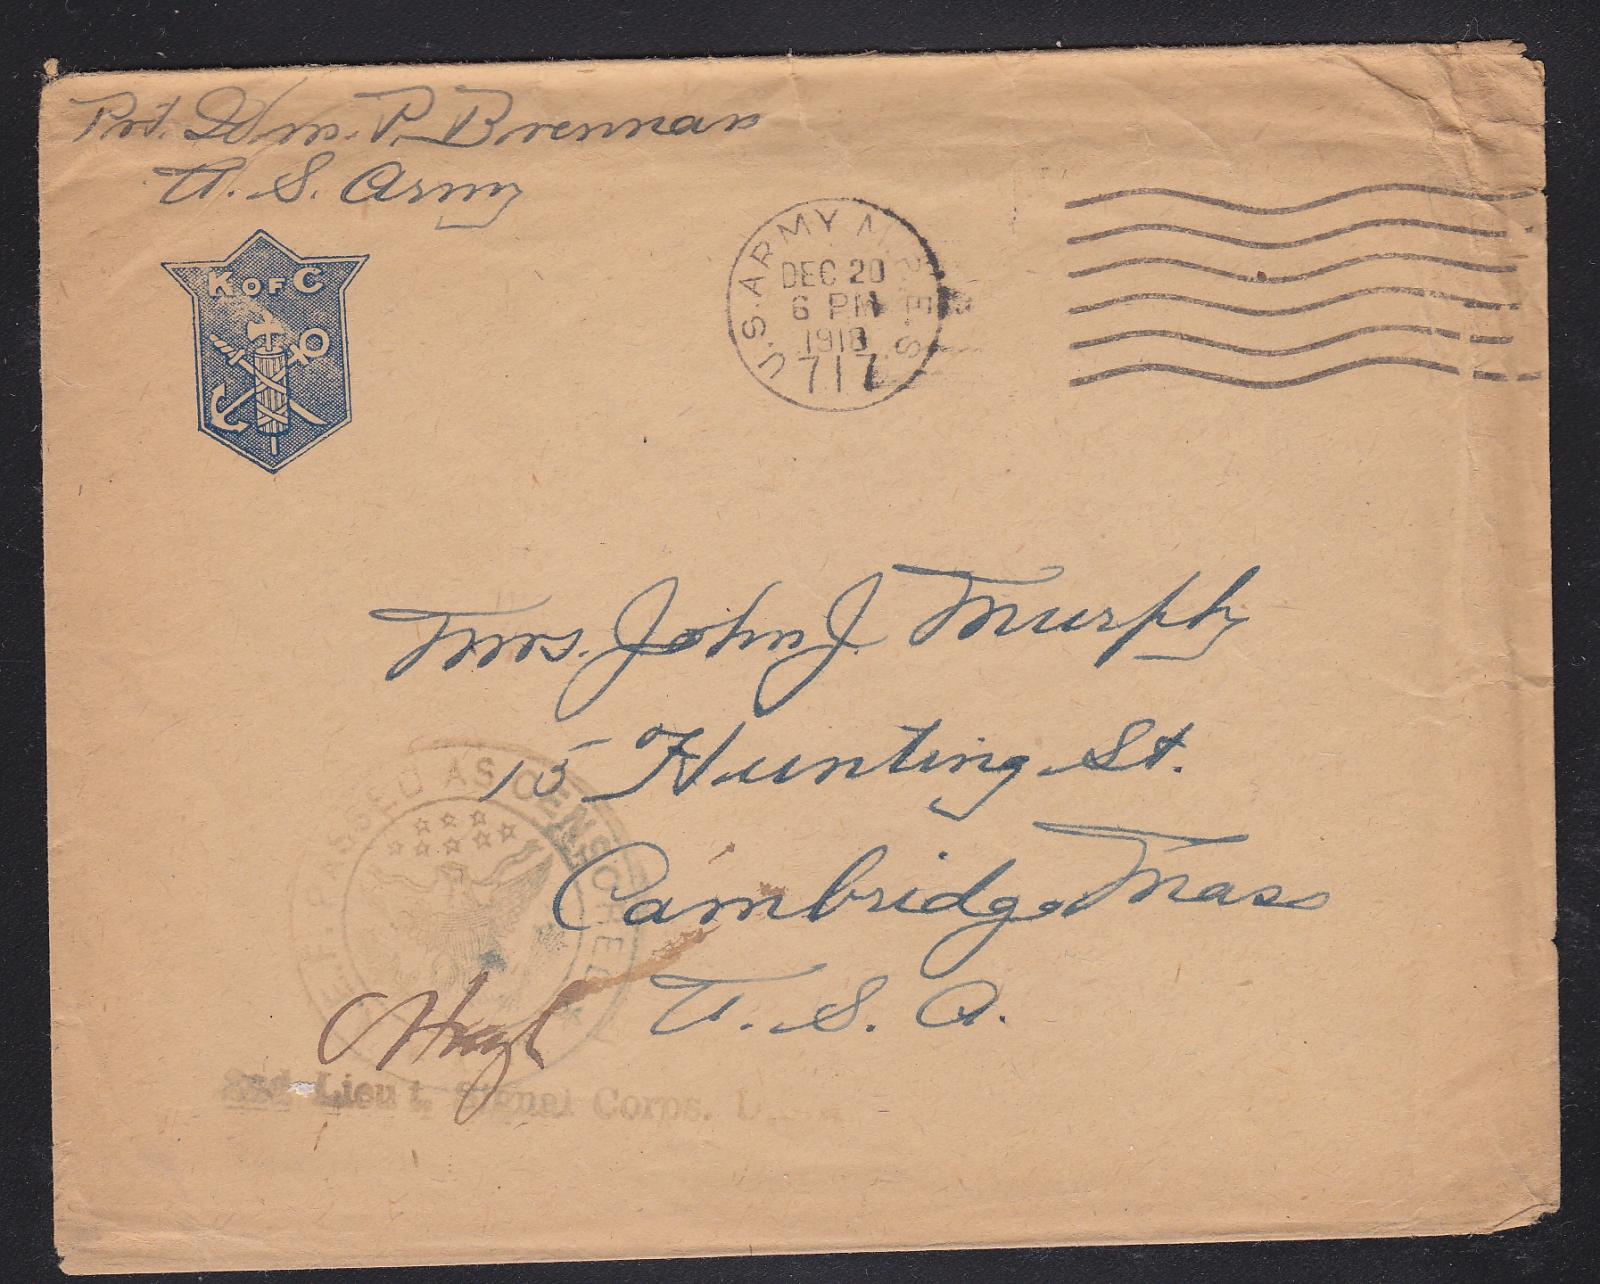 Pvt. Wm. P. Brennan
U. S. Army
K OF C
U.S. ARMY M.P.E.S.
DEC 20
6 PM
1918
717
Mrs. John J. Murphy
15 Hunting St.
Cambridge Mass
U. S. A.
A.E.F. PASSED AS CENSORED
2nd Lieut. Signal Corps.